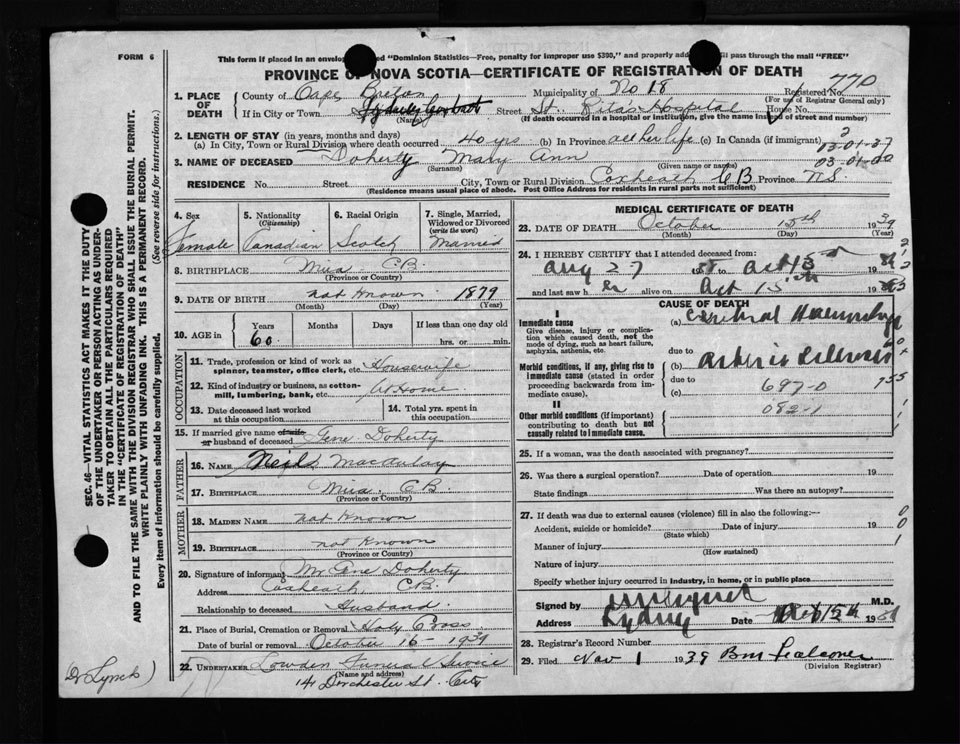 FORM 6
This form if placed in an envelope "Dominion Statistics—Free, penalty for improper use $300," and properly pass through the mail "FREE"
PROVINCE OF NOVA SCOTIA—CERTIFICATE OF REGISTRATION OF DEATH
770
1. PLACE OF DEATH
County of Cape Breton Municipality of No 18 Registered No.
(For use of Registrar General only)
If in City or Town Street St. Rita's Hospital House No.
(Name) (If death occurred in a hospital or institution, give the name instead of street and number)
2. LENGTH OF STAY (in years, months and days)
(a) In City, Town or Rural Division where death occurred 40 yrs (b) In Province all her life (c) In Canada (if immigrant)
2
03-01-37
03-01-00
3. NAME OF DECEASED Doherty Mary Ann
(Surname) (Given name or names)
RESIDENCE No. Street City, Town or Rural Division Coxheath C B Province N.S.
(Residence means usual place of abode. Post Office Address for residents in rural parts not sufficient)
4. Sex Female
5. Nationality (Citizenship) Canadian
6. Racial Origin Scotch
7. Single, Married, Widowed or Divorced (write the word) Married
8. BIRTHPLACE Mira C.B.
(Province or Country)
9. DATE OF BIRTH not Known 1879
(Month) (Day) (Year)
10. AGE in Years Months Days If less than one day old
60 hrs. or min.
OCCUPATION
11. Trade, profession or kind of work as spinner, teamster, office clerk, etc. Housewife
12. Kind of industry or business, as cotton-mill, lumbering, bank, etc. At Home
13. Date deceased last worked at this occupation
14. Total yrs. spent in this occupation
15. If married give name of wife or husband of deceased Gene Doherty
FATHER
16. NAME Neil MacAulay
17. BIRTHPLACE Mira, C.B.
(Province or Country)
MOTHER
18. MAIDEN NAME not Known
19. BIRTHPLACE not Known
(Province or Country)
20. Signature of informant Mr Gene Doherty
Address Coxheath, C.B.
Relationship to deceased Husband
21. Place of Burial, Cremation or Removal Holy Cross
Date of burial or removal October 16- 1939
22. UNDERTAKER Lowden Funeral Service
(Name and address)
141 Dorchester St. City
MEDICAL CERTIFICATE OF DEATH
23. DATE OF DEATH October 15th 39
(Month) (Day) (Year)
24. I HEREBY CERTIFY that I attended deceased from:
Aug 27 to Oct 15th 19
and last saw her alive on Oct 15th 19
CAUSE OF DEATH
I
Immediate cause
Give disease, injury or complication which caused death, not the mode of dying, such as heart failure, asphyxia, asthenia, etc.
(a) Cerebral Haemorrhage
due to
Morbid conditions, if any, giving rise to immediate cause (stated in order proceeding backwards from immediate cause).
(b) Arterio Sclerosis
due to
(c) 697-0
II
082-1
Other morbid conditions (if important) contributing to death but not causally related to immediate cause.
25. If a woman, was the death associated with pregnancy?
26. Was there a surgical operation? Date of operation 19
State findings Was there an autopsy?
27. If death was due to external causes (violence) fill in also the following:—
Accident, suicide or homicide? Date of injury 19
(State which)
Manner of injury
(How sustained)
Nature of injury
Specify whether injury occurred in industry, in home, or in public place
Signed by M.D.
Address Sydney Date Oct 15th 193
28. Registrar's Record Number
29. Filed Nov 1 1939 B M Falconer
(Division Registrar)
SEC. 46—VITAL STATISTICS ACT MAKES IT THE DUTY
OF THE UNDERTAKER OR PERSON ACTING AS UNDERTAKER TO OBTAIN ALL THE PARTICULARS REQUIRED
IN THE "CERTIFICATE OF REGISTRATION OF DEATH"
AND TO FILE THE SAME WITH THE DIVISION REGISTRAR WHO SHALL ISSUE THE BURIAL PERMIT.
WRITE PLAINLY WITH UNFADING INK. THIS IS A PERMANENT RECORD.
Every item of information should be carefully supplied. (See reverse side for instructions.)
Dr Lynch)